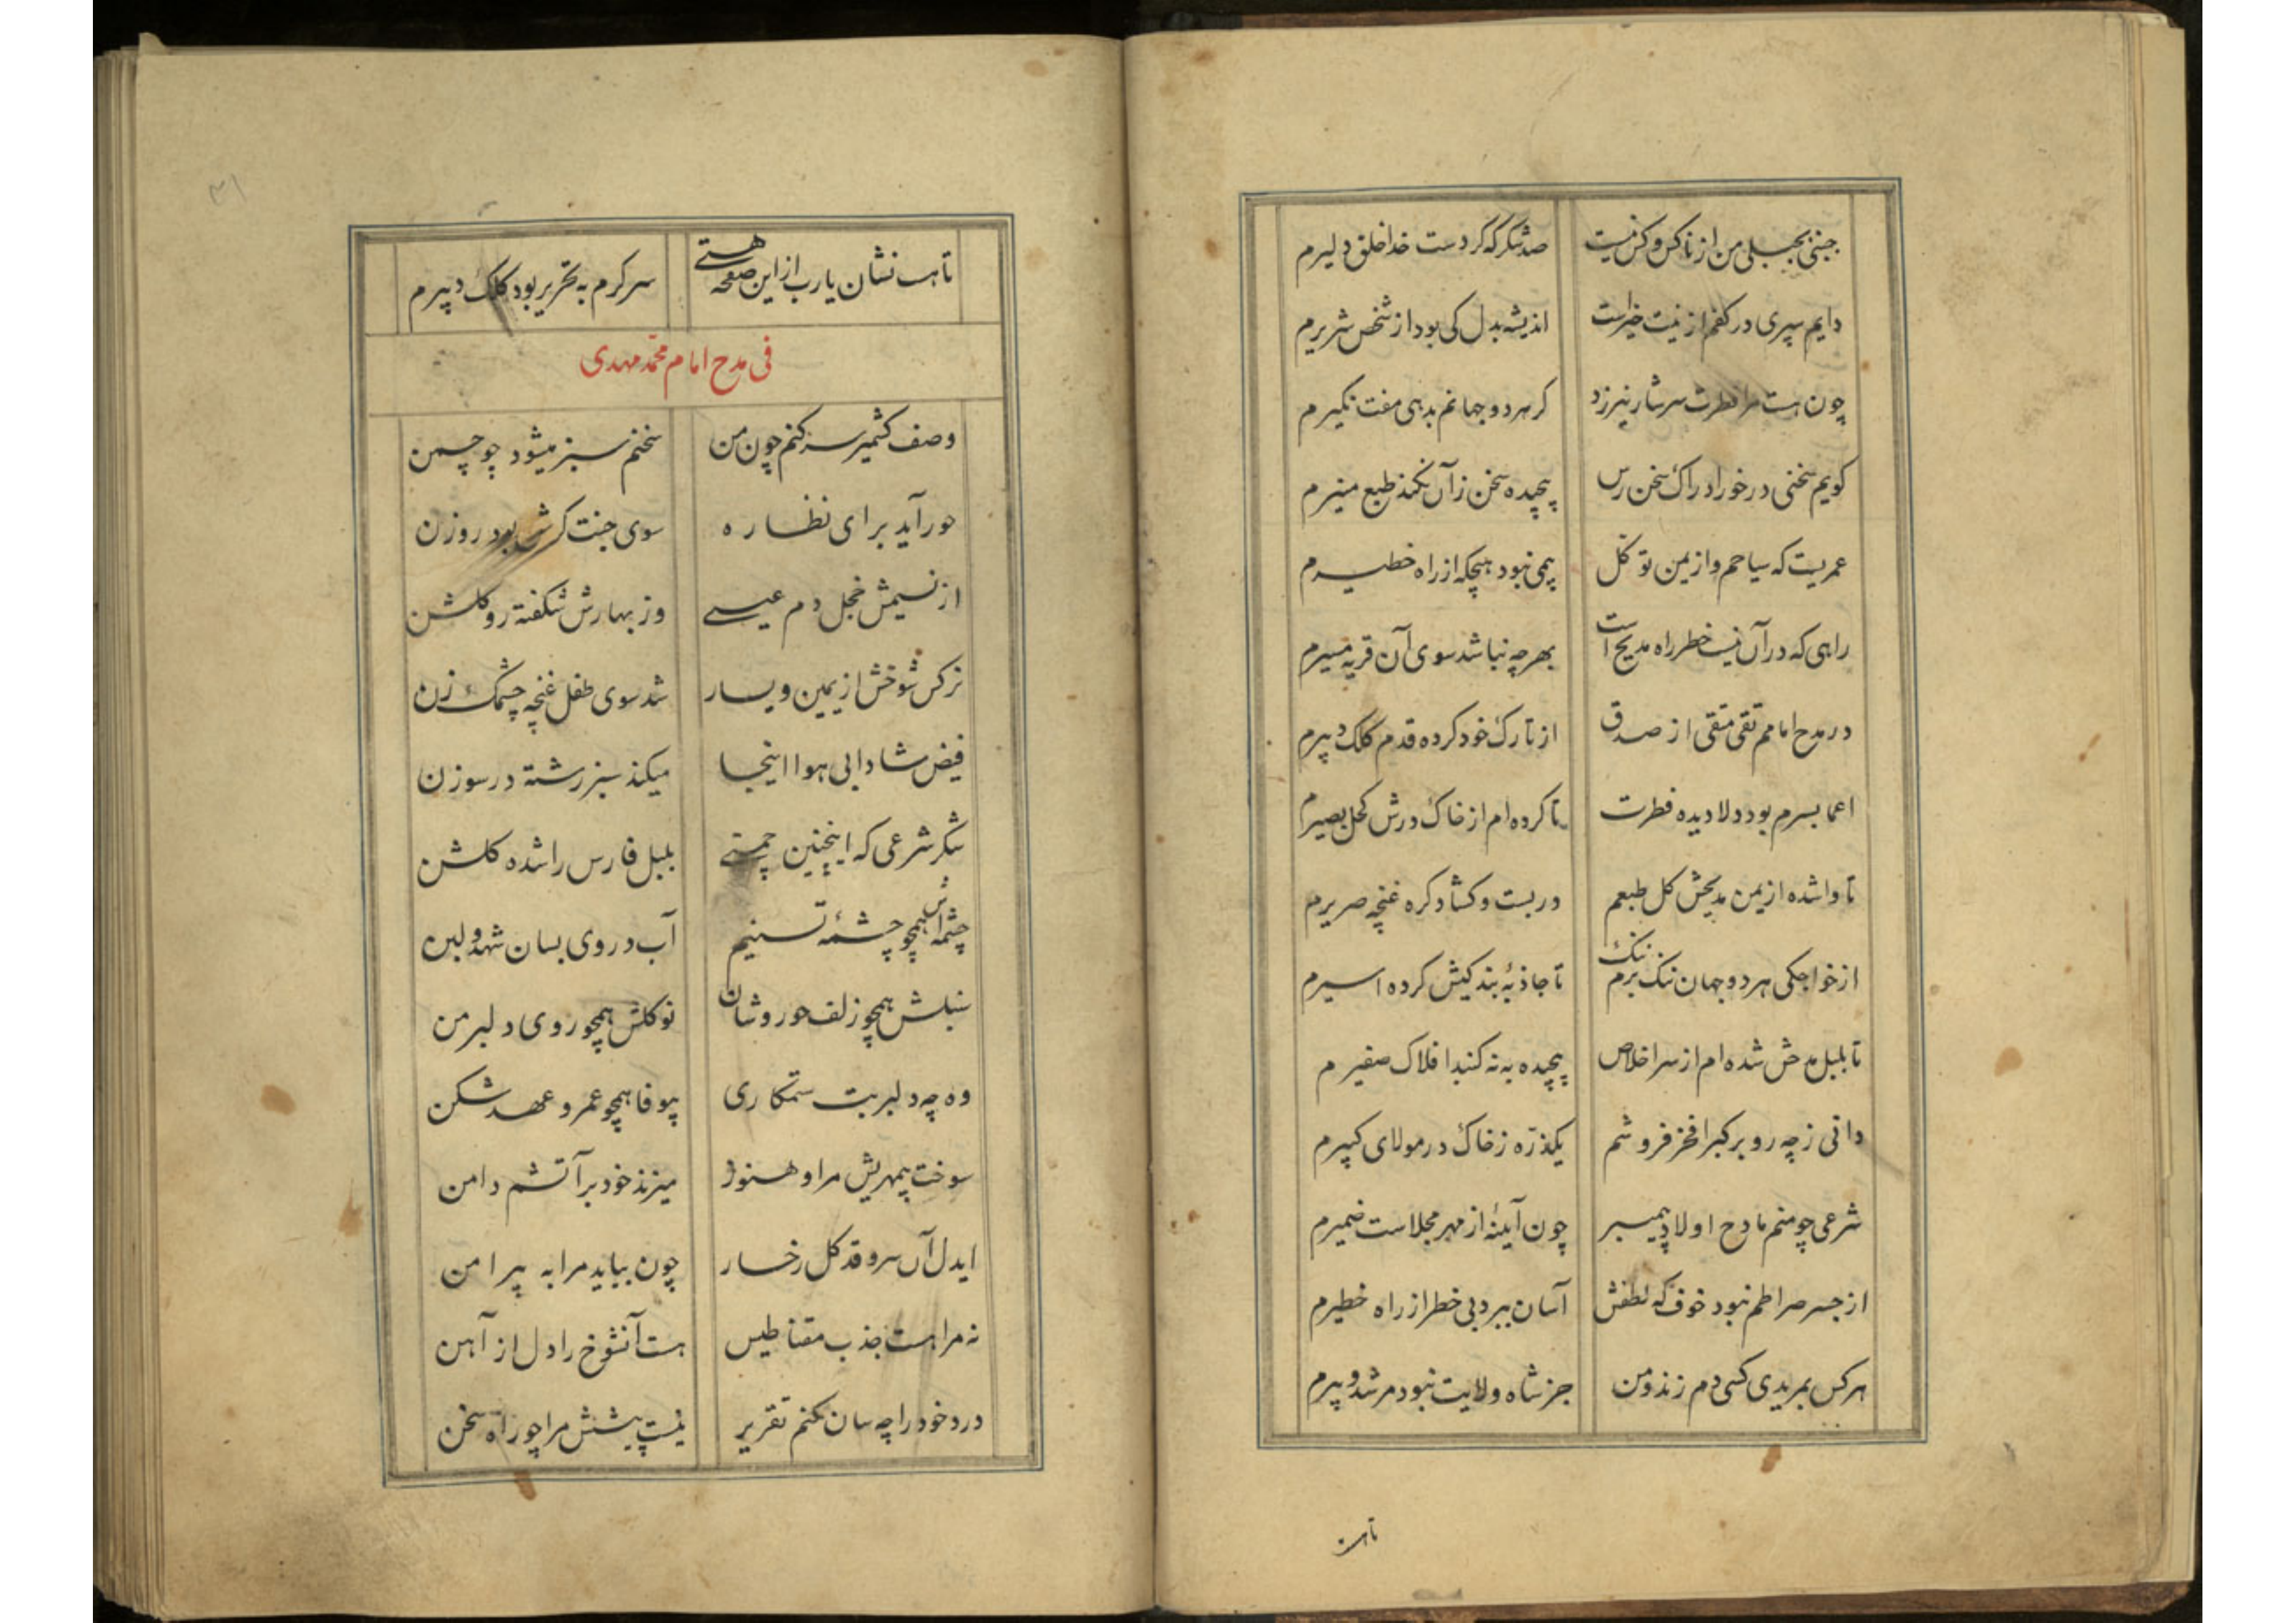 جنبن بجبلی من از ناکس و کس نیست صد شکر که کردست خدا خلق دلیرم
دایم سپری در کفم از نیت خیراست اندیشه بدل کی بود از شخص شریرم
چون هست مرا فطرت سرشار نیرزد کر هر دو جهانم بدهی مفت نکیرم
کویم سخنی در خور ادراک سخن رس پیچیده سخن زآن نکند طبع منیرم
عمریست که سیاحم و از یمن توکل بیمی نبود هیچکه از راه خطیرم
راهی که در آن نیست خطر راه مدیح است بهر چه نباشد سوی آن قریه مسیرم
در مدح امامم تقی متقی از صدق از تارک خود کرده قدم کلک دبیرم
اعما بسرم بود ولا دیده فطرت تا کرده ام از خاک درش کحل بصیرم
تا واشده از یمن مدیحش کل طبعم در بست و کشاد کره غنچه صریرم
از خواجکی هر دو جهان ننک برم ننک تا جاذبهٔ بندکیش کرده اسیرم
تا بلبل مدحش شده ام از سر اخلاص پیچیده به نه کنبد افلاک صفیرم
دانی ز چه رو بر کبرا فخر فروشم یکذره ز خاک در مولای کبیرم
شرعی چو منم مادح اولاد پیمبر چون آینهٔ از مهر مجلاست ضمیرم
از جسر صراطم نبود خوف که لطفش آسان ببرد بی خطر از راه خطیرم
هر کس بمریدی کسی دم زند و من جز شاه ولایت نبود مرشد و پیرم
تا هست
۳۱
تا هست نشان یا رب از این صفحه هستی سر کرم به تحریر بود کلک دبیرم
فی مدح امام محمد مهدی
وصف کشمیر سر کنم چون من سخنم سبز میشود چو چمن
حور آید برای نظاره سوی جنت کرش بود روزن
از نسیمش خجل دم عیسی وز بهارش شکفته رو کلشن
نرکس شوخش از یمین و یسار شد سوی طفل غنچه چشمک زن
فیض شادابی هوا اینجا میکند سبز رشته در سوزن
شکر شرعی که اینچنین چمنی بلبل فارس را شده کلشن
چشمه اش همچو چشمهٔ تسنیم آب در وی بسان شهد و لبن
سنبلش همچو زلف حوروشان نوکلش همچو روی دلبر من
وه چه دلبر بت ستمکاری بیوفا همچو عمر و عهد شکن
سوخت بیمهریش مرا و هنوز میزند خود بر آتشم دامن
ایدل آن سرو قد کل رخسار چون بیاید مرا به پیرامن
نه مرا هست جذب مقناطیس هست آنشوخ را دل از آهن
درد خود را چه سان کنم تقریر نیست پیشش مرا چو راه سخن